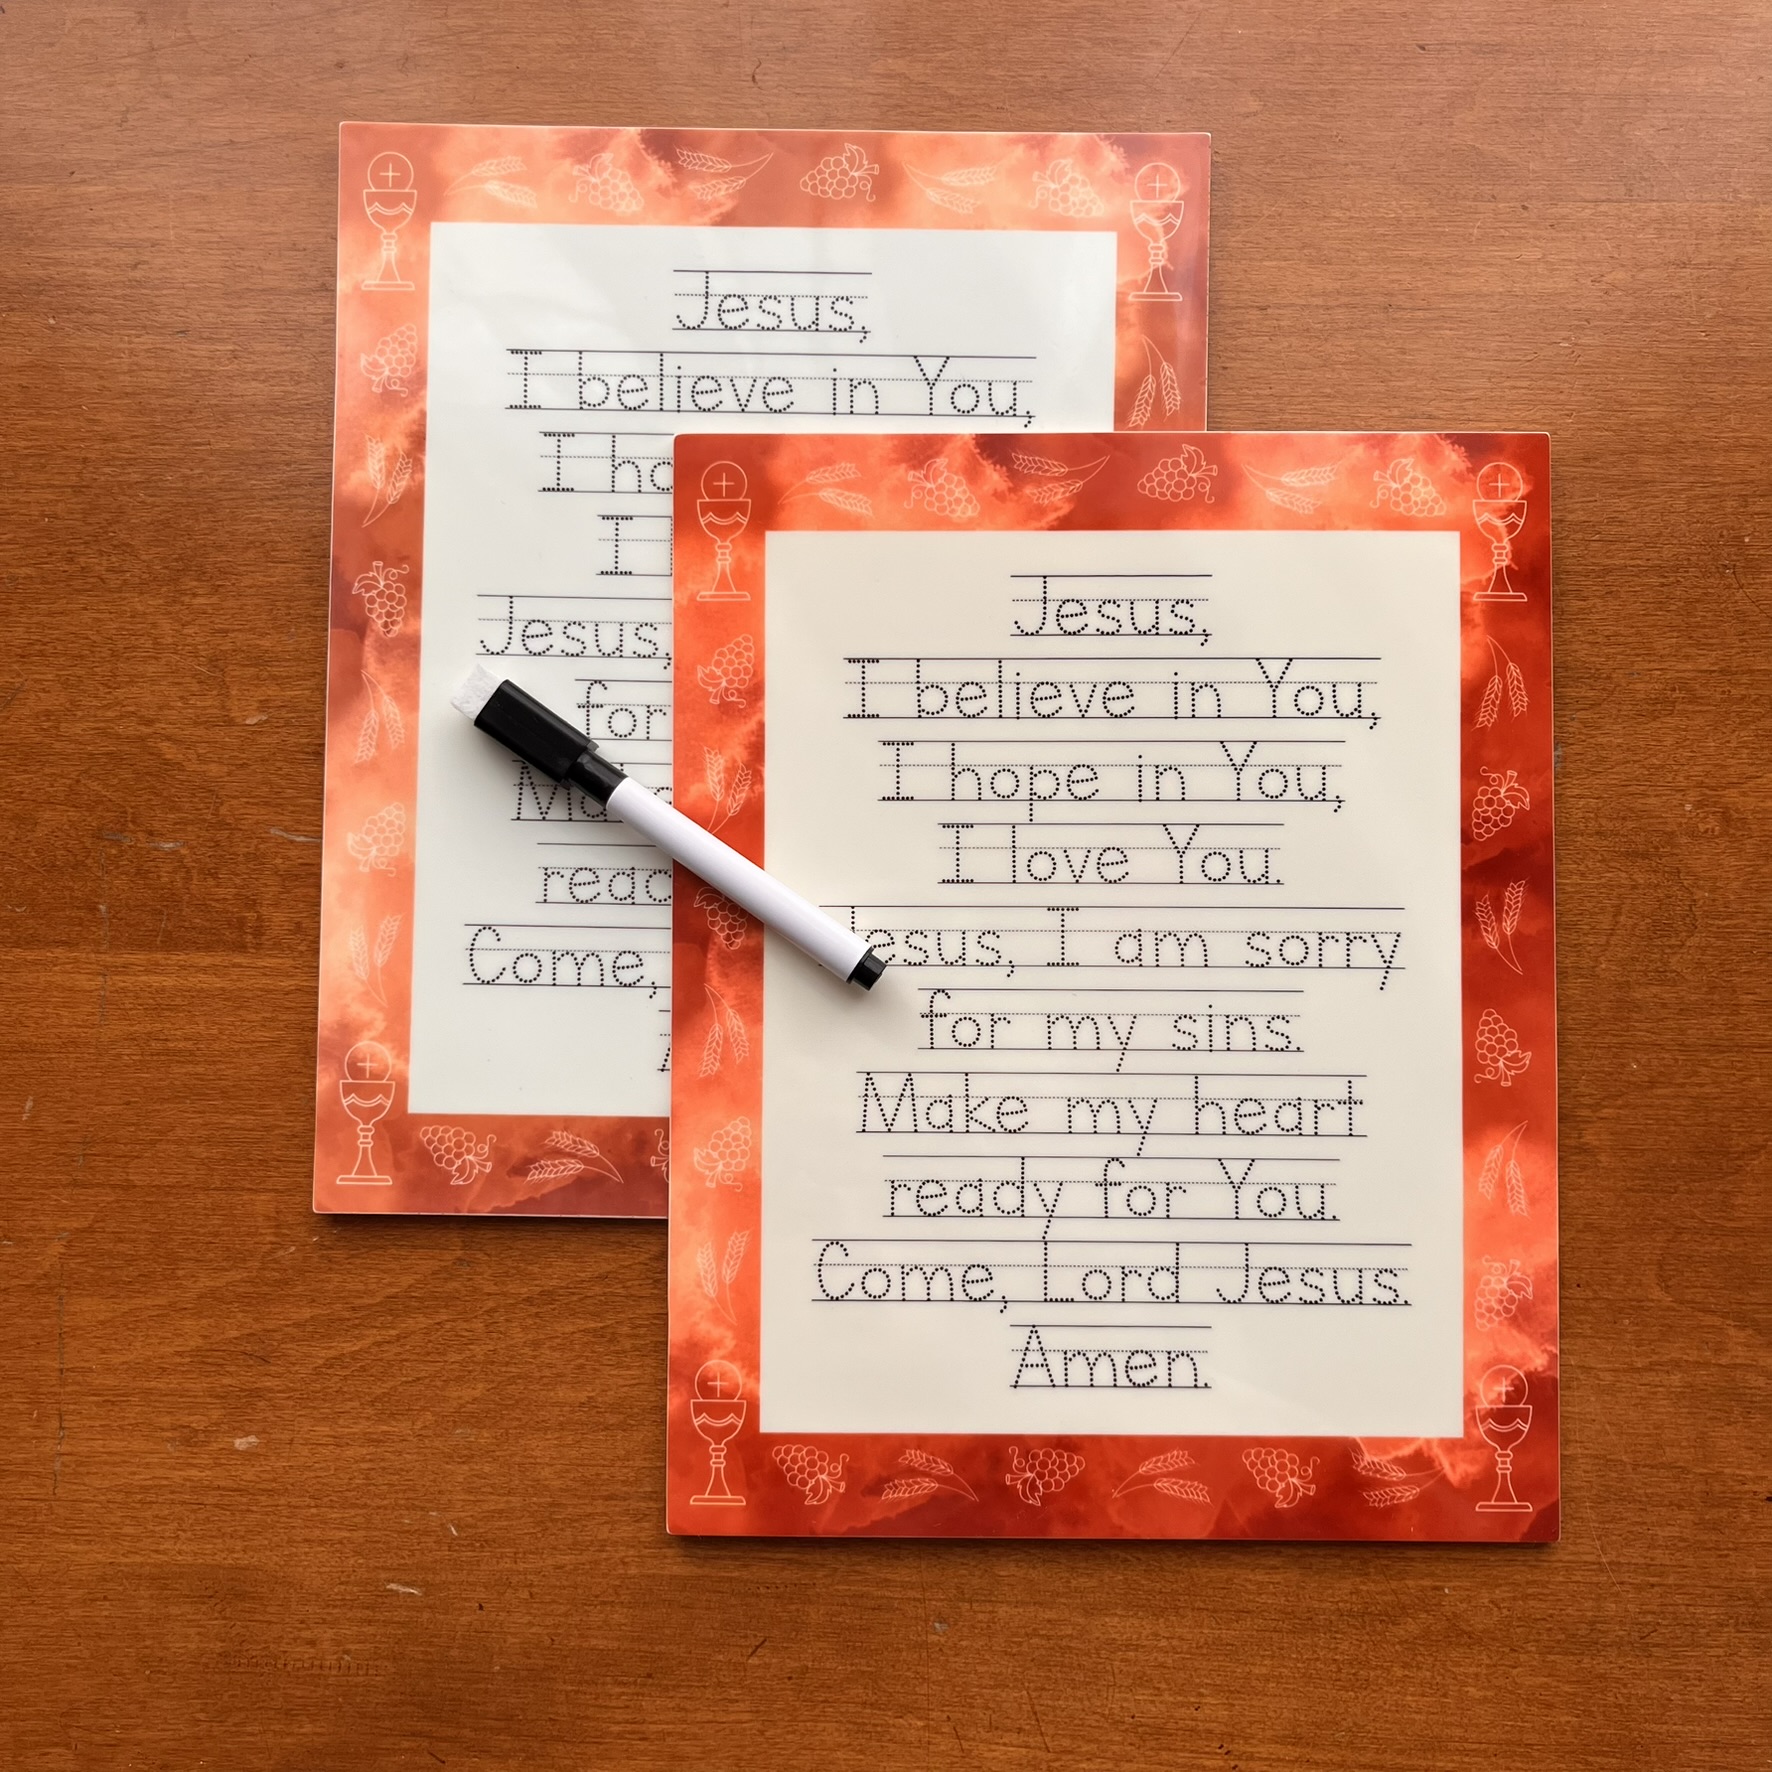 Jesus,
I believe in You,
I
I
Jesus,
for
Come,
Jesus,
I believe in You,
I hope in You,
I love You.
Jesus, I am sorry
for my sins.
Make my heart
ready for You.
Come, Lord Jesus.
Amen.